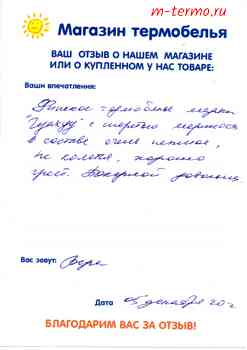 m-termo.ru
Магазин термобелья
ВАШ ОТЗЫВ О НАШЕМ МАГАЗИНЕ
ИЛИ О КУПЛЕННОМ У НАС ТОВАРЕ:
Ваши впечатления:
Финское термобелье марки
с шерстью мериноса
в составе очень нежное,
не колется, хорошо
греет. Покупкой довольна.
Вас зовут: Вера
Дата 05 декабря 20 г
БЛАГОДАРИМ ВАС ЗА ОТЗЫВ!